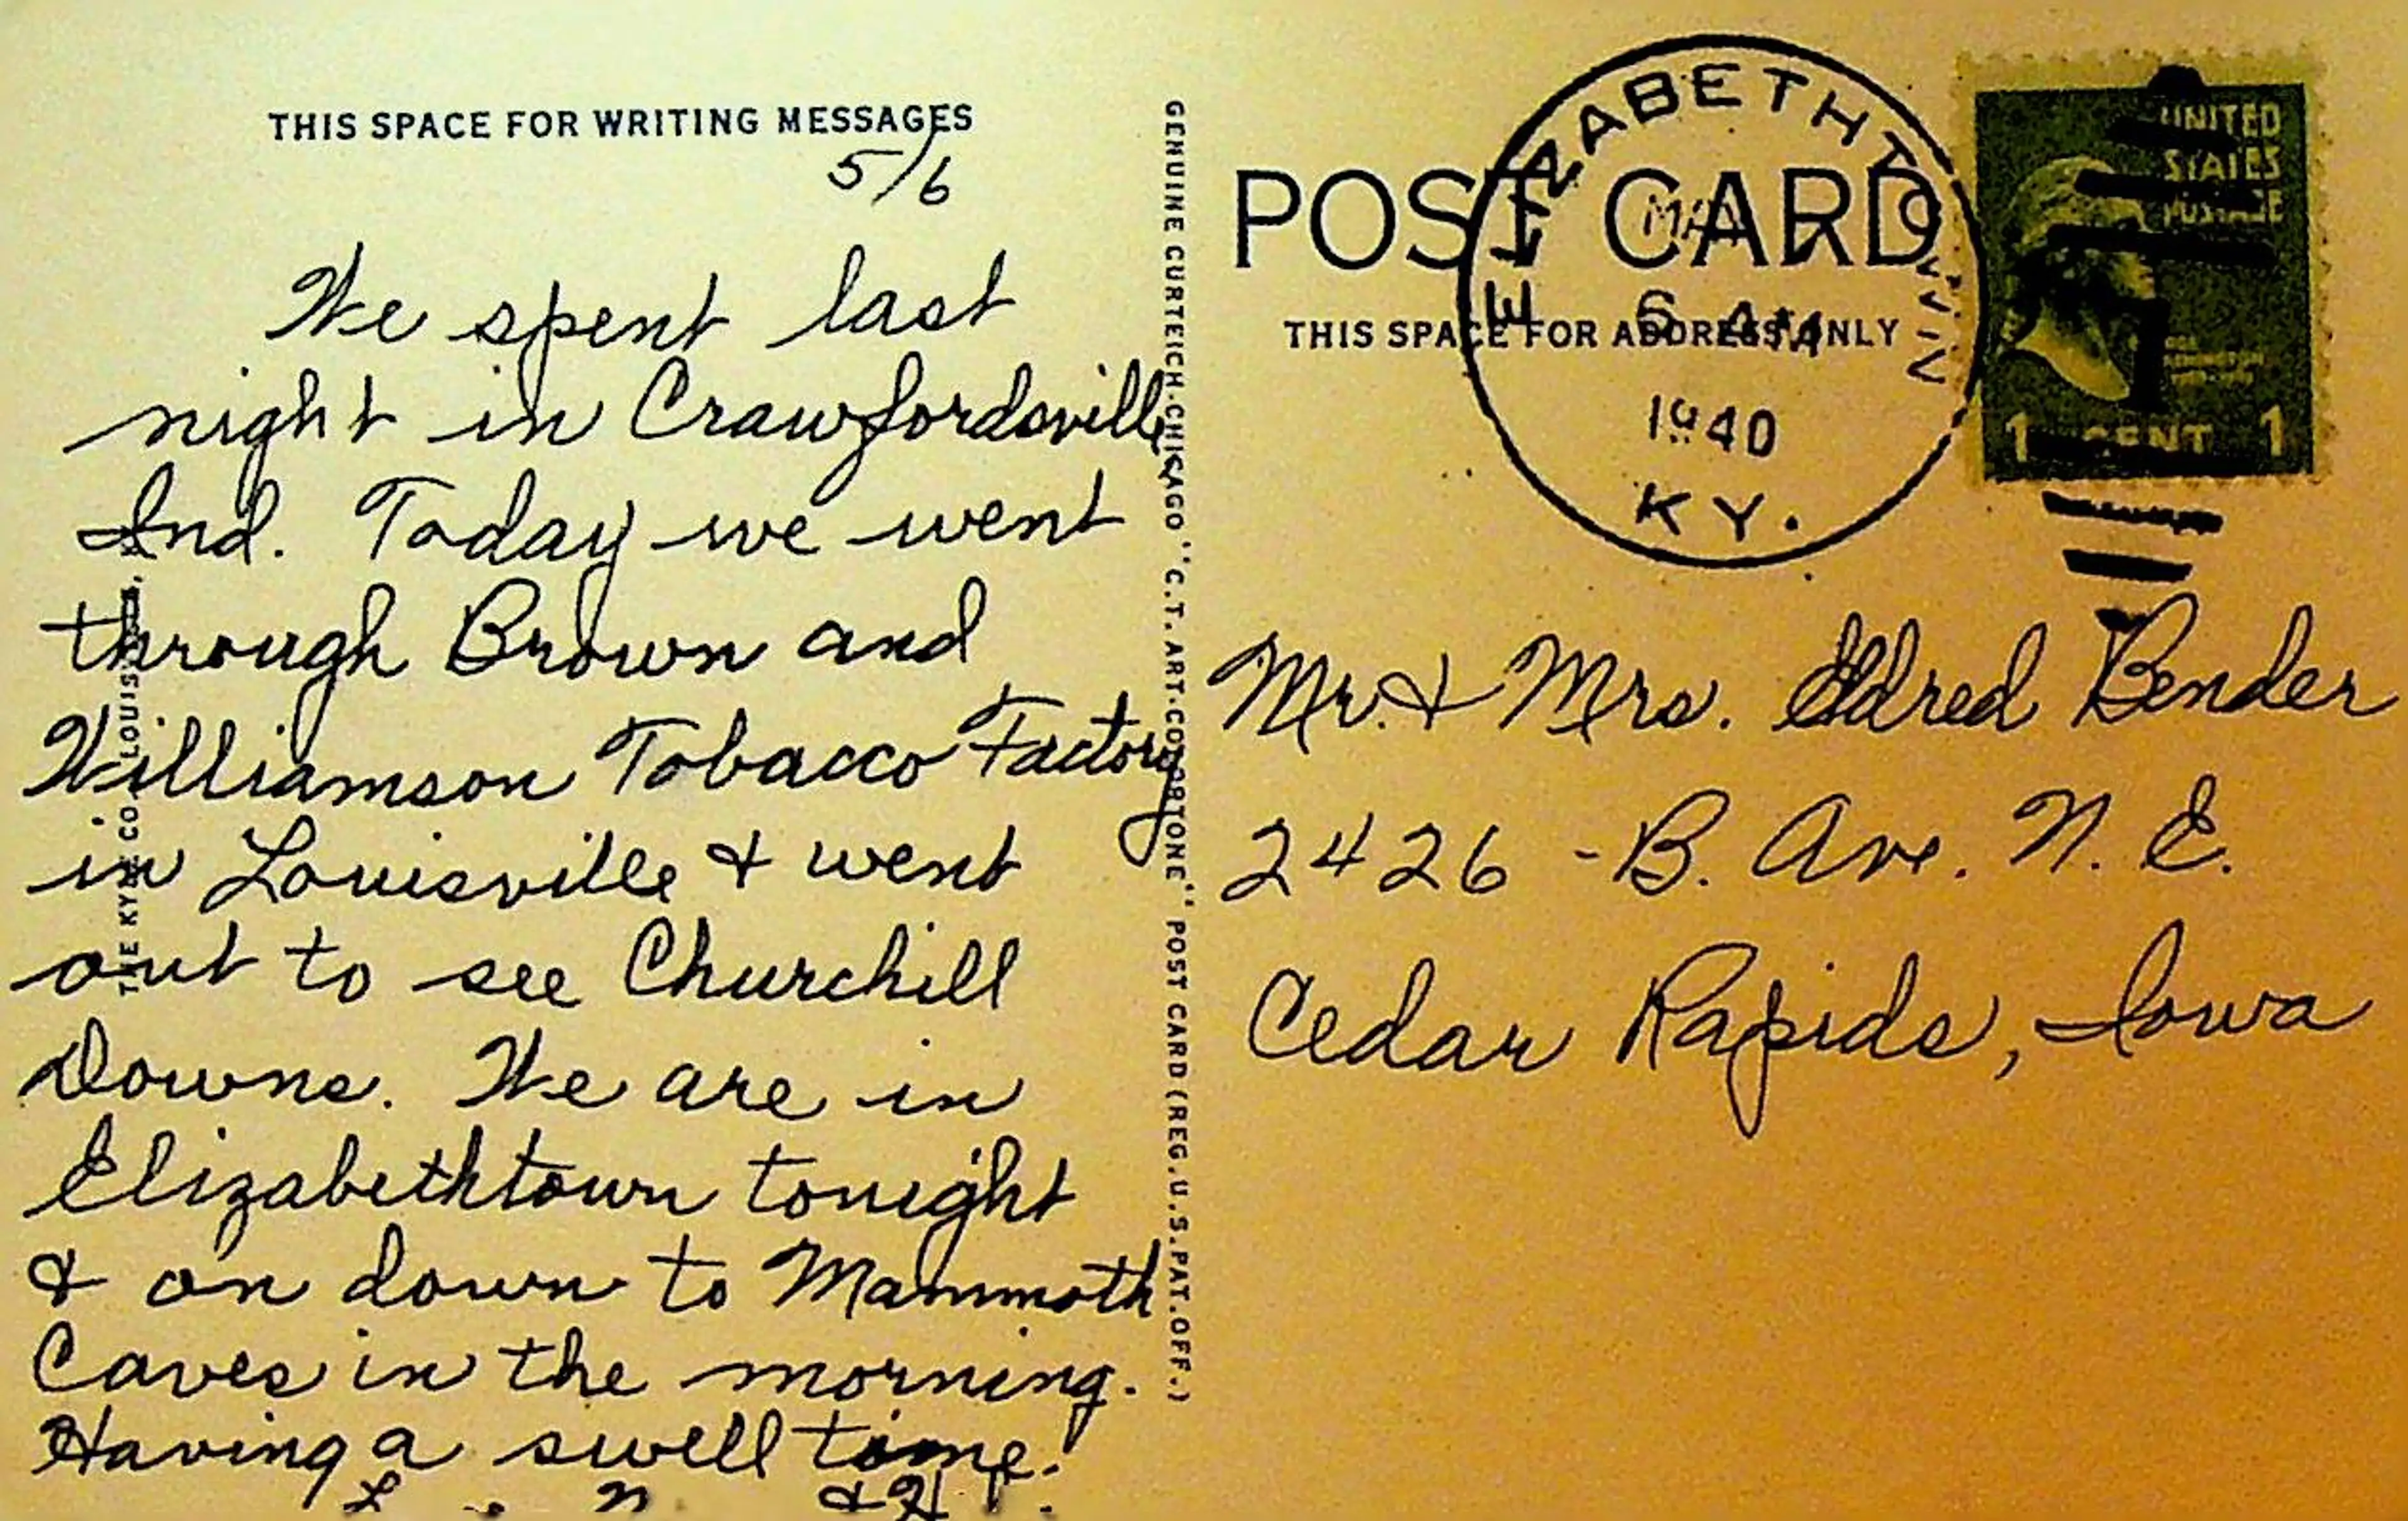 THIS SPACE FOR WRITING MESSAGES
5/6
We spent last
night in Crawfordsville,
Ind. Today we went
through Brown and
Williamson Tobacco Factory
in Louisville & went
out to see Churchill
Downs. We are in
Elizabethtown tonight
& on down to Mammoth
Caves in the morning.
Having a swell time!
THE KY CO LOUIS
GENUINE CURTEICH-CHICAGO "C.T. ART-COLORTONE" POST CARD (REG. U.S. PAT. OFF.)
POST CARD
THIS SPACE FOR ADDRESS ONLY
ELIZABETHTOWN
MAY 7
6 AM
1940
KY.
UNITED
STATES
POSTAGE
1 CENT 1
Mr. & Mrs. Eldred Bender
2426 - B. Ave. N. E.
Cedar Rapids, Iowa